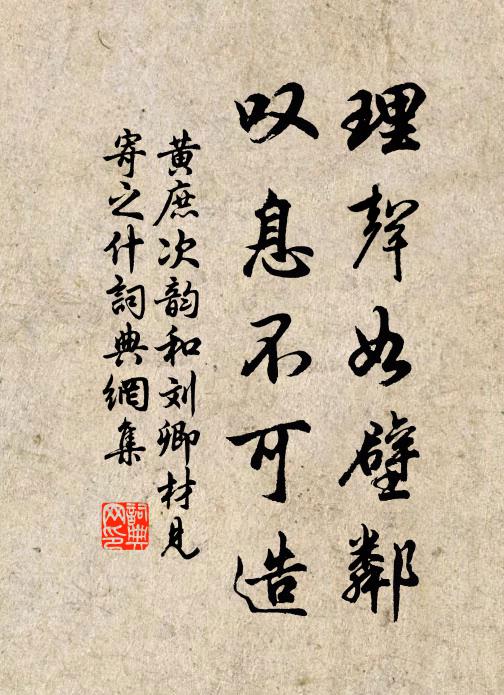 理聲如壁鄰
叹息不可造
黄庶次韵和刘卿材見
寄之什詞典網集
詞典
网印